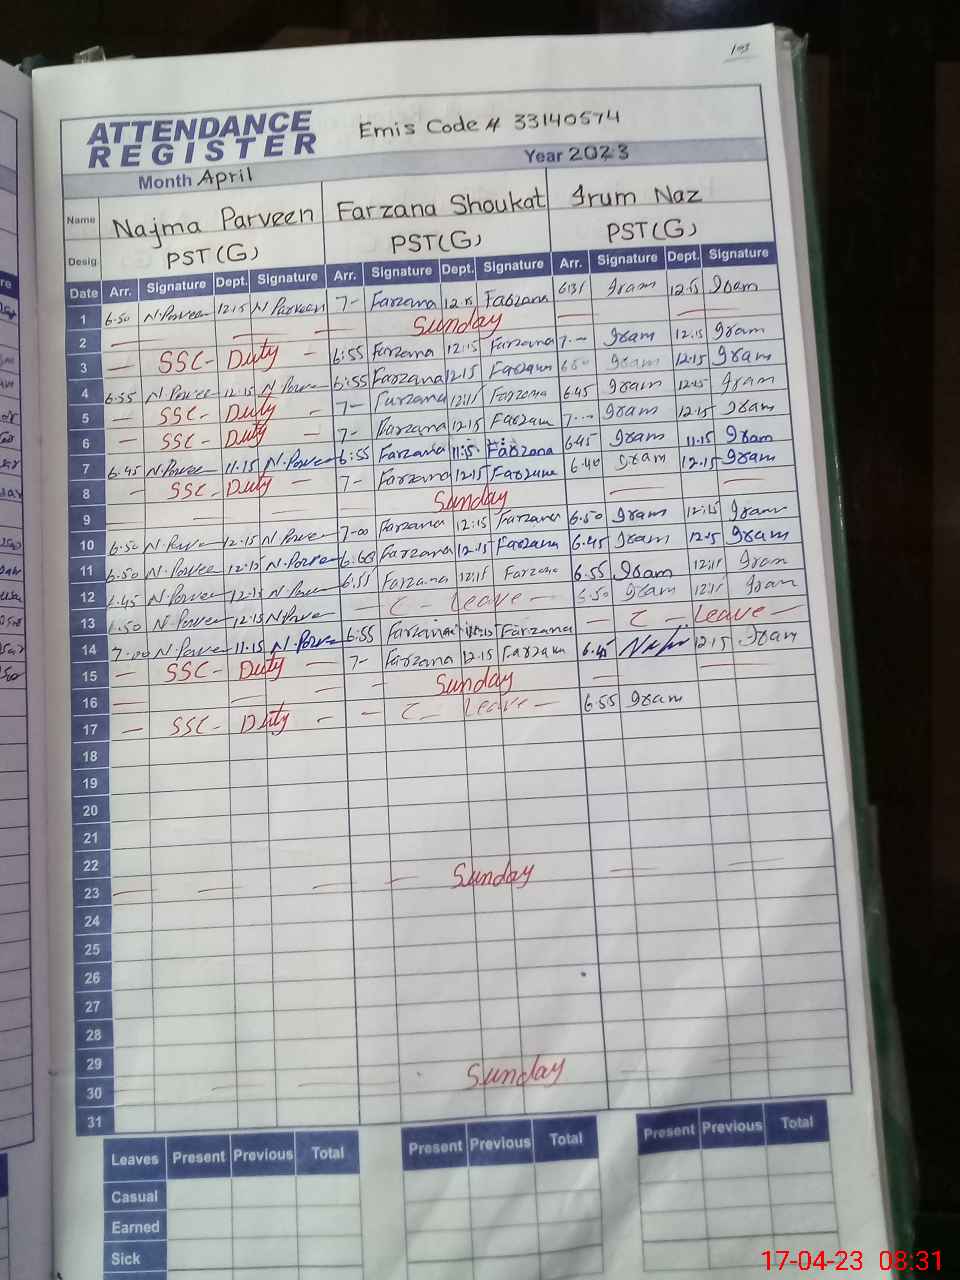 ATTENDANCE
REGISTER
Emis Code # 33140574
Month April Year 2023
Name Najma Parveen Farzana Shoukat Irum Naz
Desig PST(G) PST(G) PST(G)
Date Arr. Signature Dept. Signature Arr. Signature Dept. Signature Arr. Signature Dept. Signature
1 6.50 N.Parveen 12.15 N Parveen 7- Farzana 12.15 Farzana Iram 12.15 Iram
2 — — — Sunday — —
3 — SSC- Duty — 6:55 Farzana 12.15 Farzana 7.— Iram 12.15 Iram
4 6.55 N.Parveen 12.15 N.Parveen 6:55 Farzana 12.15 Farzana Iram 12.15 Iram
5 — SSC- Duty — 7- Farzana Farzana 6.45 Iram 12.15 Iram
6 — SSC- Duty — 7- Farzana 12.15 Farzana 7.— Iram 12.15 Iram
7 6.45 N.Parveen 11.15 N.Parveen 6:55 Farzana 11:15 Farzana 6.45 Iram 11.15 Iram
8 — SSC- Duty — 7- Farzana 12.15 Farzana 6.40 Iram 12.15 Iram
9 — — — Sunday — —
10 6.50 N.Parveen 12.15 N.Parveen 7-00 Farzana 12:15 Farzana 6.50 Iram 12:15 Iram
11 6.50 N.Parveen 12.15 N.Parveen Farzana 12.15 Farzana 6.45 Iram 12.15 Iram
12 6.45 N.Parveen 12.15 N.Parveen 6:55 Farzana 12:15 Farzana 6.55 Iram Iram
13 6.50 N.Parveen 12.15 N.Parveen — C- Leave — 6.50 Iram Iram
14 7.00 N.Parveen 11.15 N.Parveen 6:55 Farzana Farzana — C- Leave —
15 — SSC- Duty — 7- Farzana 12.15 Farzana 6.45 12.15 Iram
16 — — — — Sunday — —
17 — SSC- Duty — — C- Leave — 6.55 Iram
18
19
20
21
22
23 — — — — Sunday — —
24
25
26
27
28
29
30 — — — Sunday — —
31
Leaves Present Previous Total Present Previous Total Present Previous Total
Casual
Earned
Sick
17-04-23 08:31